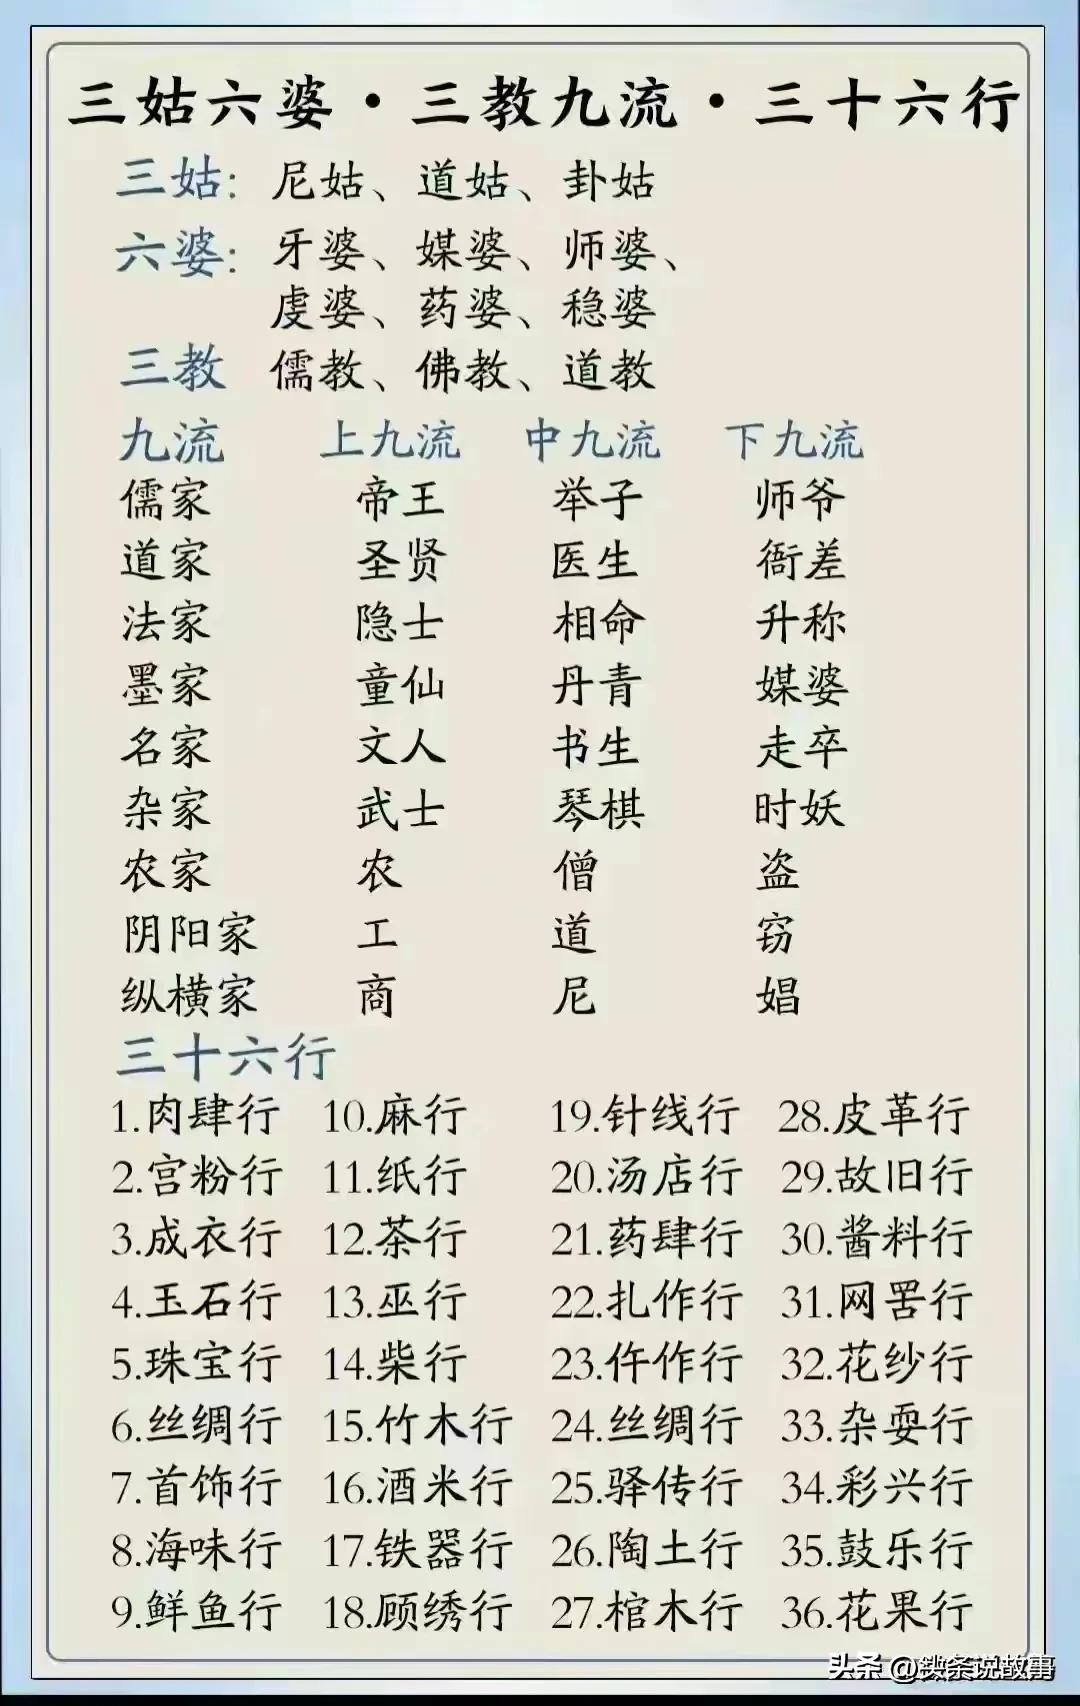 三姑六婆·三教九流·三十六行
三姑：尼姑、道姑、卦姑
六婆：牙婆、媒婆、师婆、
虔婆、药婆、稳婆
三教 儒教、佛教、道教
九流 上九流 中九流 下九流
儒家 帝王 举子 师爷
道家 圣贤 医生 衙差
法家 隐士 相命 升称
墨家 童仙 丹青 媒婆
名家 文人 书生 走卒
杂家 武士 琴棋 时妖
农家 农 僧 盗
阴阳家 工 道 窃
纵横家 商 尼 娼
三十六行
1.肉肆行 10.麻行 19.针线行 28.皮革行
2.宫粉行 11.纸行 20.汤店行 29.故旧行
3.成衣行 12.茶行 21.药肆行 30.酱料行
4.玉石行 13.巫行 22.扎作行 31.网罟行
5.珠宝行 14.柴行 23.仵作行 32.花纱行
6.丝绸行 15.竹木行 24.丝绸行 33.杂耍行
7.首饰行 16.酒米行 25.驿传行 34.彩兴行
8.海味行 17.铁器行 26.陶土行 35.鼓乐行
9.鲜鱼行 18.顾绣行 27.棺木行 36.花果行
头条 @轶条说故事